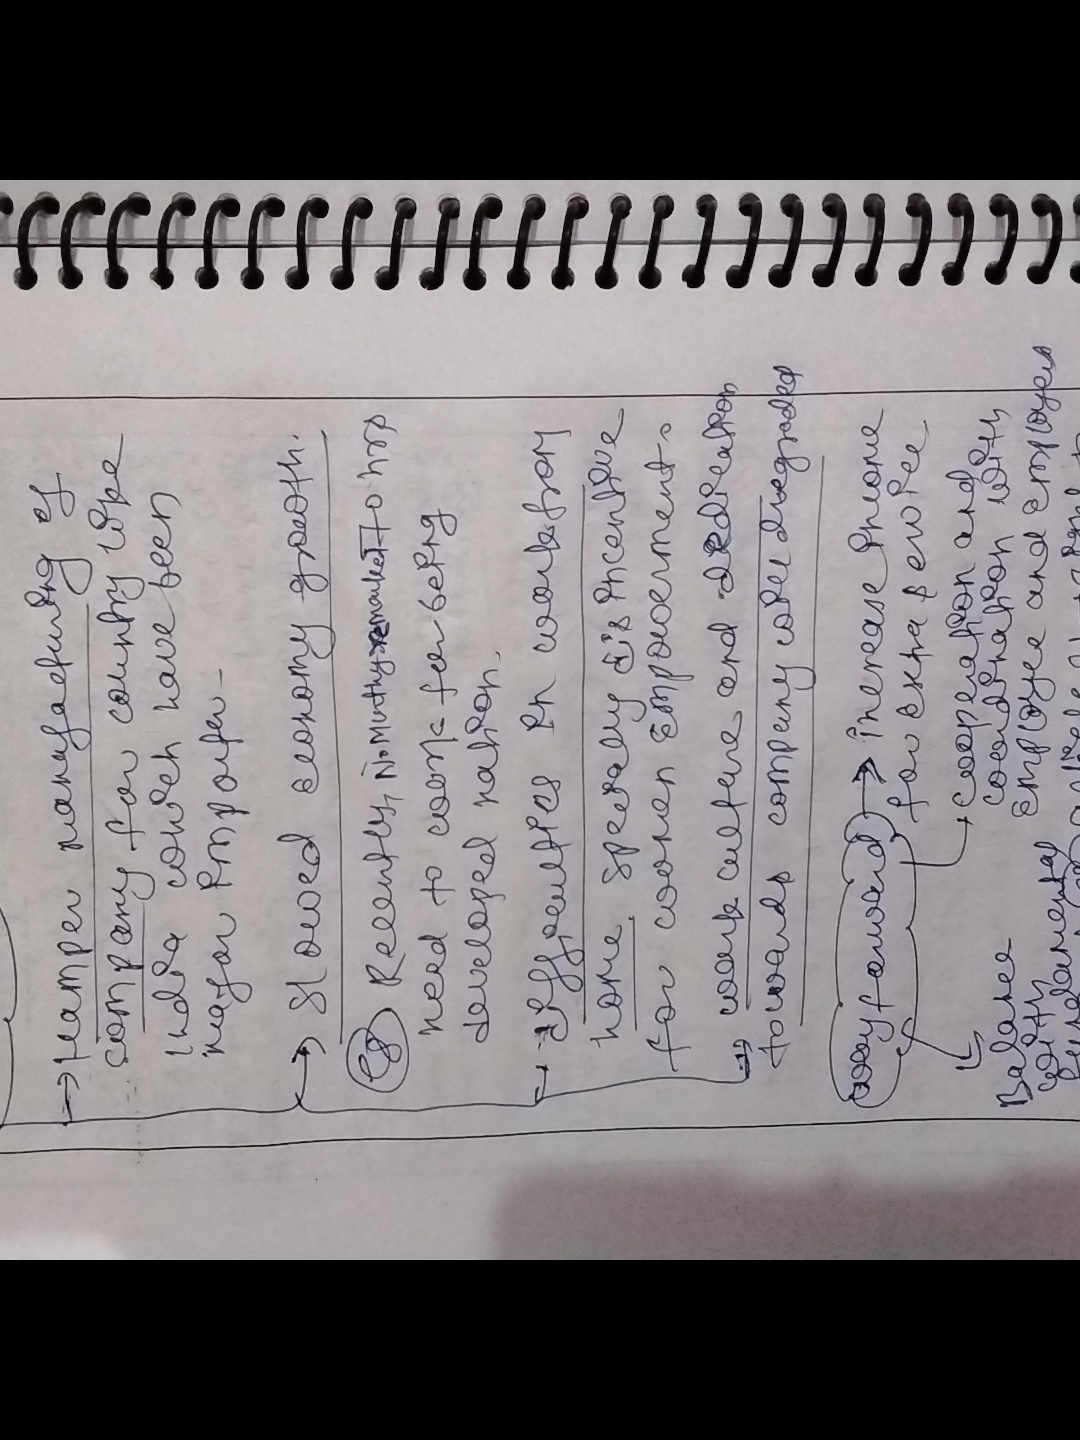 → Hamper manufacturing of
company for country like
India which have been
major importer -
→ Slowed economy growth.
Eg Recently, N. Murthy remarked 70 hrs
need to work for being
developed nation.
→ Difficulties in work from
home specially disincentive
for women empowerment.
→ work culture and dedication
towards company will degraded
way forward → increase income
for extra service
→ cooperation and
coordination with
employee and employers
→ Balance
with
fundamental